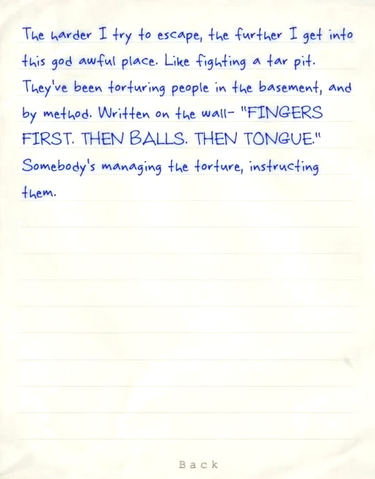 The harder I try to escape, the further I get into
this god awful place. Like fighting a tar pit.
They've been torturing people in the basement, and
by method. Written on the wall- "FINGERS
FIRST. THEN BALLS. THEN TONGUE."
Somebody's managing the torture, instructing
them.
Back